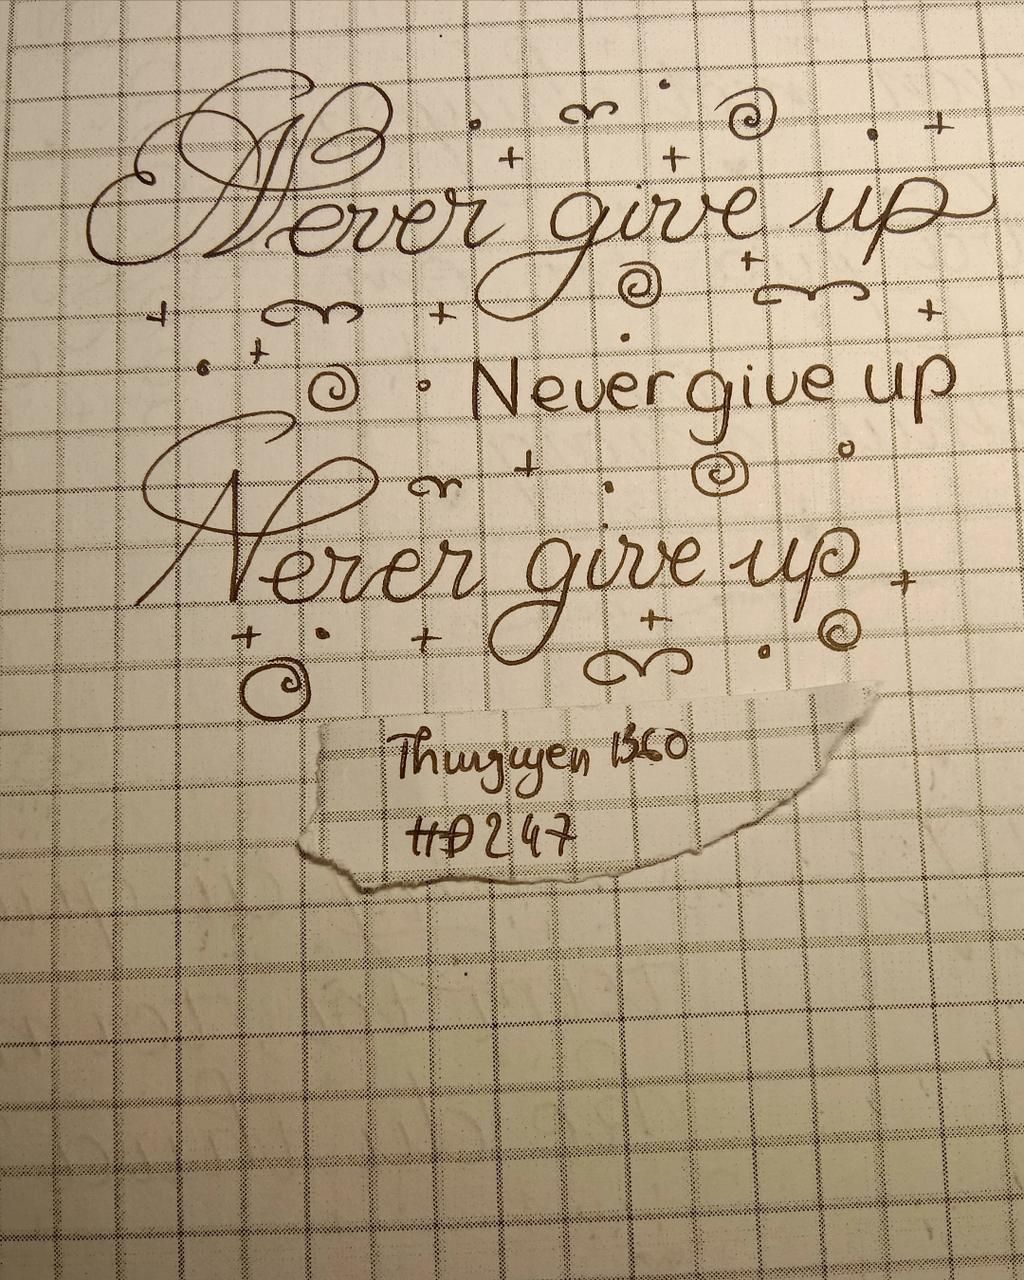 Never give up
Never give up
Never give up
Thuyguyen 1360
HD247